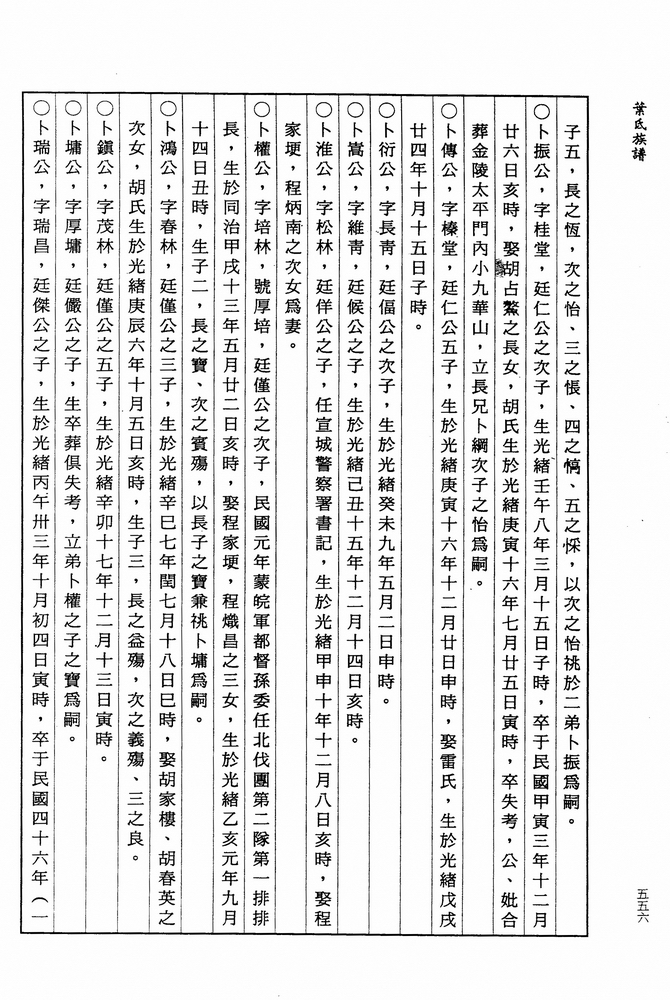 葉氏族譜
子五，長之恆，次之怡、三之悵、四之愩、五之怺，以次之怡祧於二弟卜振爲嗣。
○卜振公，字桂堂，廷仁公之次子，生光緒壬午八年三月十五日子時，卒于民國甲寅三年十二月
廿六日亥時，娶胡占鰲之長女，胡氏生於光緒庚寅十六年七月廿五日寅時，卒失考，公、妣合
葬金陵太平門內小九華山，立長兄卜綱次子之怡爲嗣。
○卜傳公，字榛堂，廷仁公五子，生於光緒庚寅十六年十二月廿日申時，娶雷氏，生於光緒戊戌
廿四年十月十五日子時。
○卜衍公，字長靑，廷偪公之次子，生於光緒癸未九年五月二日申時。
○卜嵩公，字維靑，廷候公之子，生於光緒己丑十五年十二月十四日亥時。
○卜淮公，字松林，廷佯公之子，任宣城警察署書記，生於光緒甲申十年十二月八日亥時，娶程
家埂，程炳南之次女爲妻。
○卜權公，字培林，號厚培，廷僅公之次子，民國元年蒙皖軍都督孫委任北伐團第二隊第一排排
長，生於同治甲戌十三年五月廿二日亥時，娶程家埂，程熾昌之三女，生於光緒乙亥元年九月
十四日丑時，生子二，長之寶、次之賓殤，以長子之寶兼祧卜墉爲嗣。
○卜鴻公，字春林，廷僅公之三子，生於光緒辛巳七年閏七月十八日巳時，娶胡家樓、胡春英之
次女，胡氏生於光緒庚辰六年十月五日亥時，生子三，長之益殤，次之義殤、三之良。
○卜鎭公，字茂林，廷僅公之五子，生於光緒辛卯十七年十二月十三日寅時。
○卜墉公，字厚墉，廷儼公之子，生卒葬俱失考，立弟卜權之子之寶爲嗣。
○卜瑞公，字瑞昌，廷傑公之子，生於光緒丙午卅三年十月初四日寅時，卒于民國四十六年（一
五五六